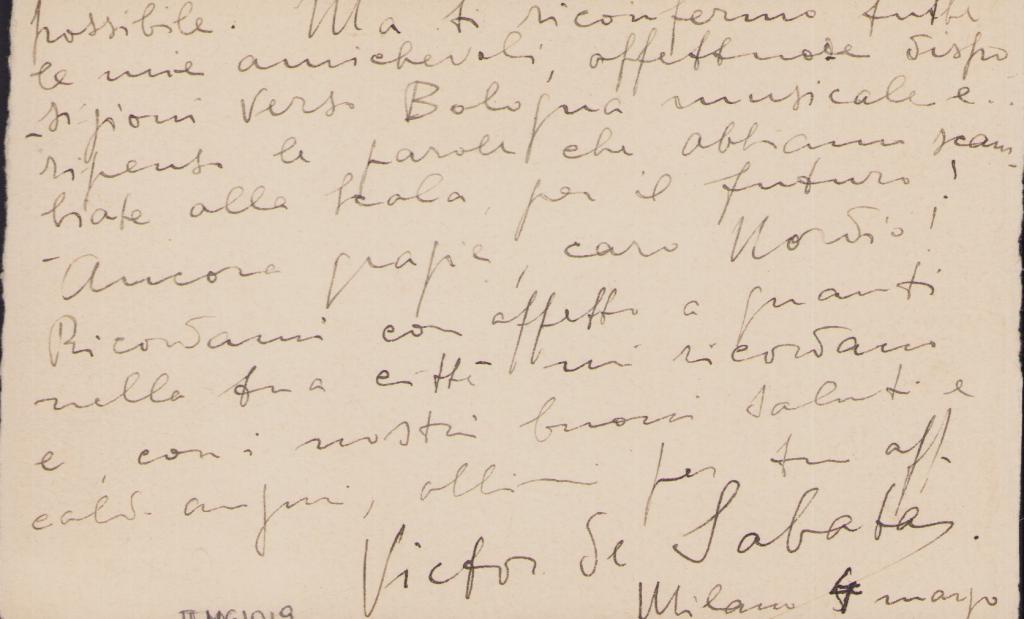 possibile. Ma ti riconfermo tutte
le mie amichevoli, affettuose dispo
-sizioni verso Bologna musicale e..
ripenso le parole che abbiamo scam-
biate alla Scala, per il futuro!
- Ancora grazie, caro Nordio!
Ricordami con affetto a quanti
nella tua città mi ricordano
e, con i nostri buoni saluti e
caldi auguri, per tuo aff.
Victor de Sabata.
Milano 4 marzo